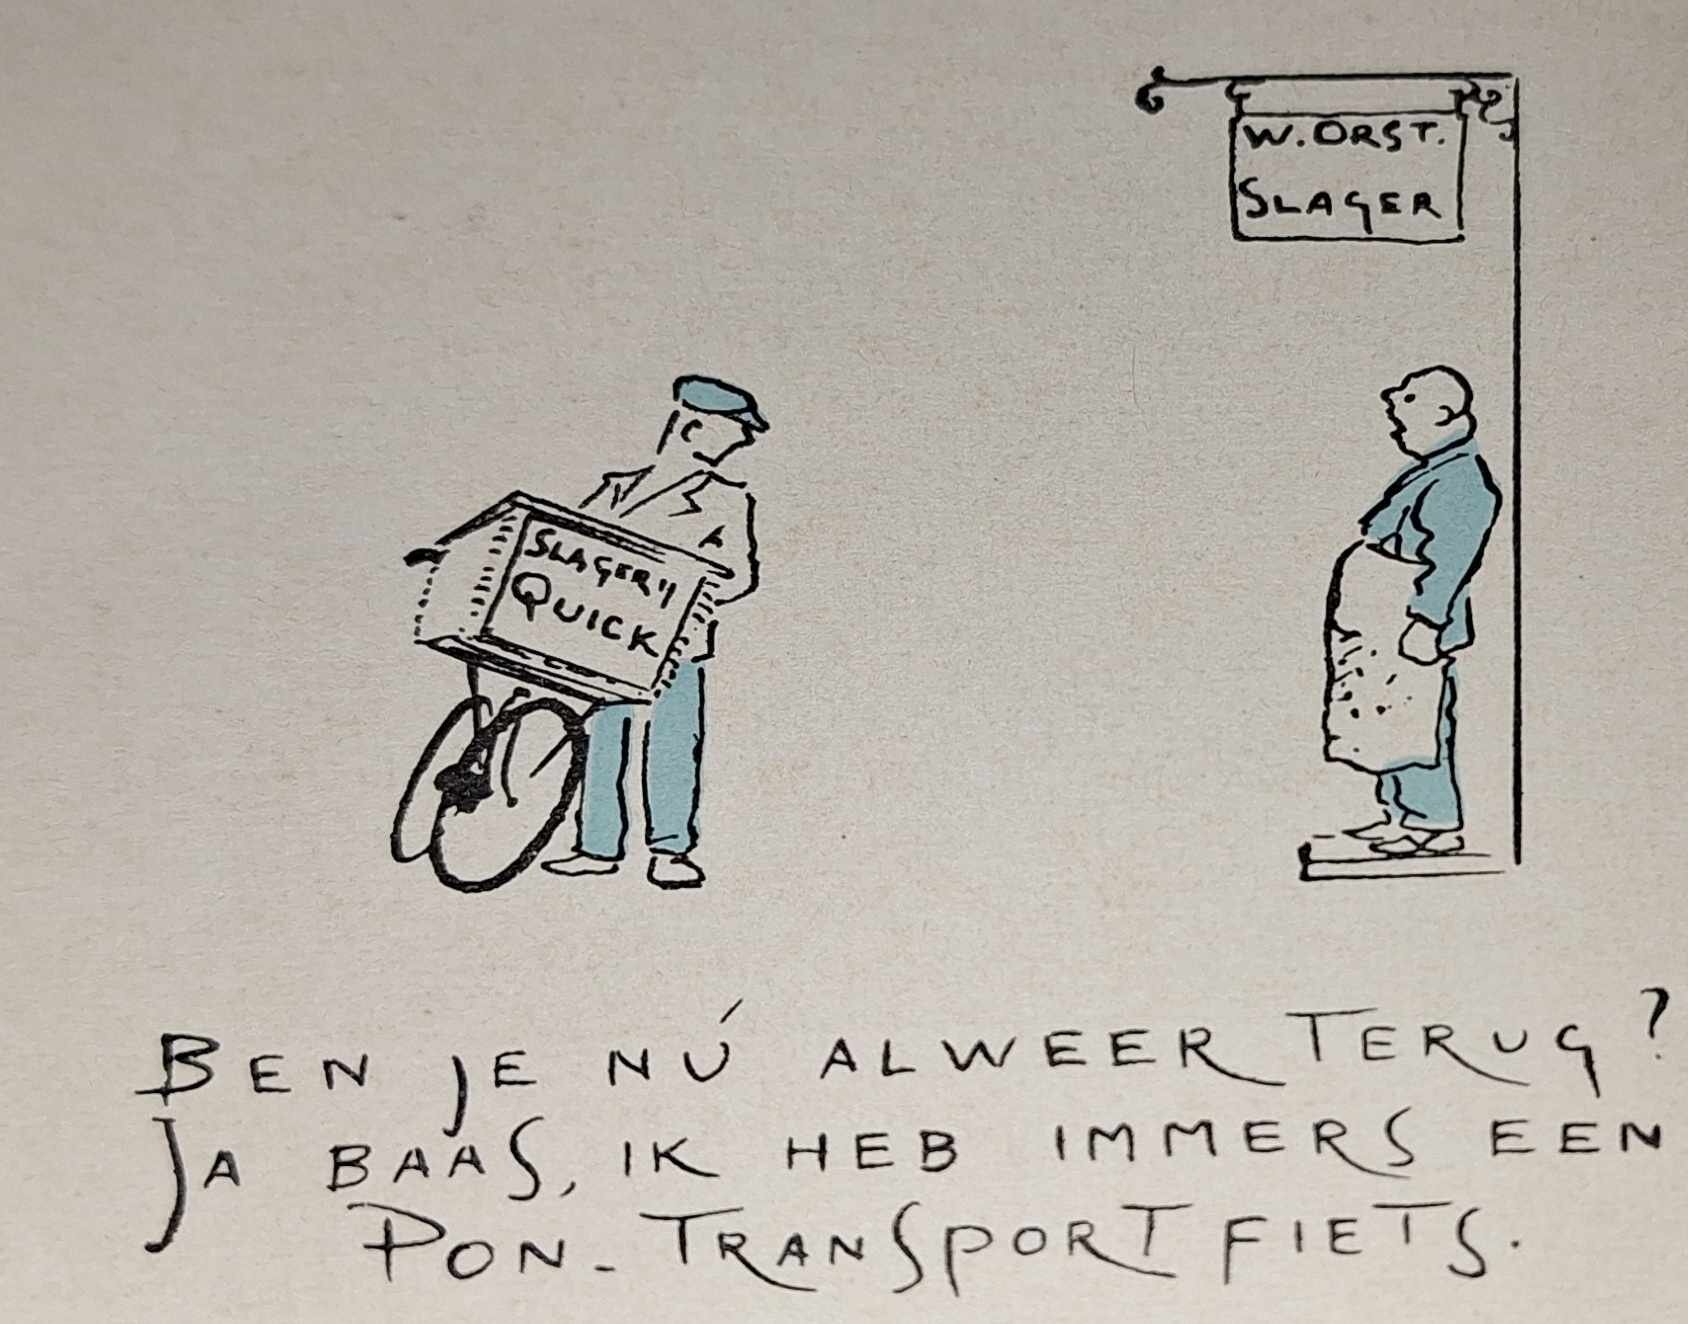 W. ORST.
SLAGER
SLAGERIJ
QUICK
BEN JE NÚ ALWEER TERUG?
JA BAAS, IK HEB IMMERS EEN
PON-TRANSPORTFIETS.